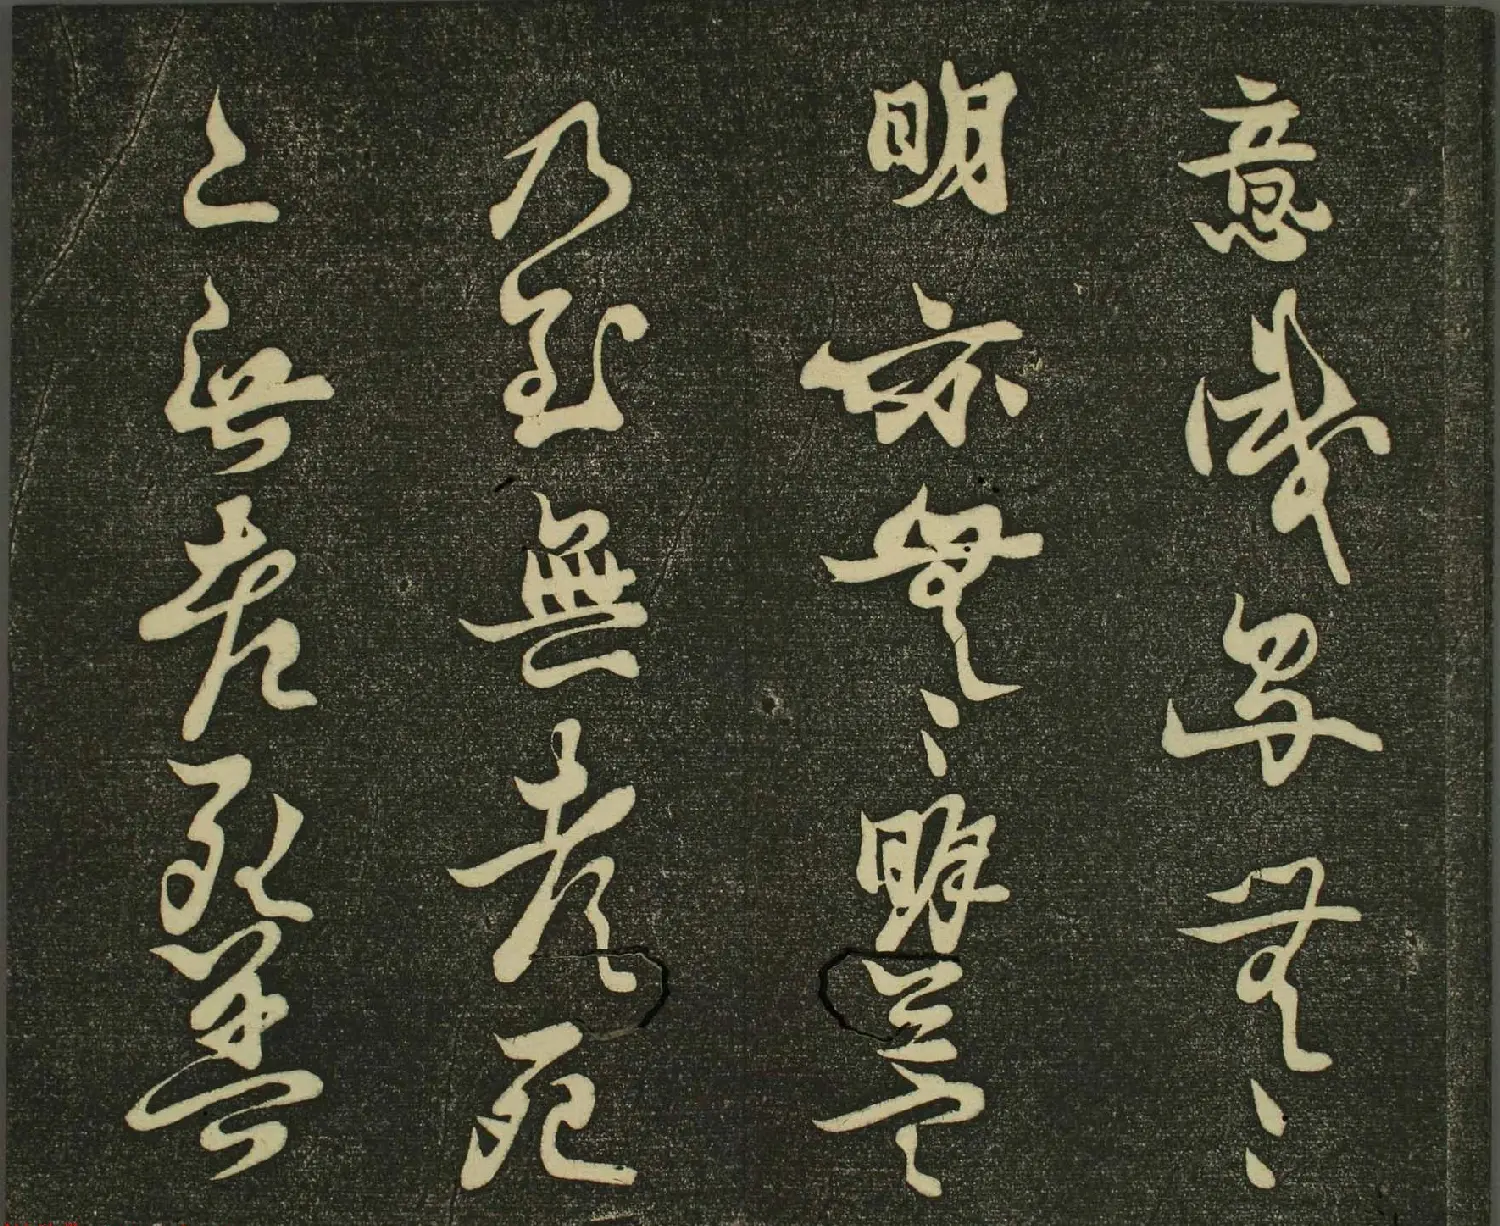 意識界無〻
明亦無〻明盡
乃至無老死
亦無老死盡